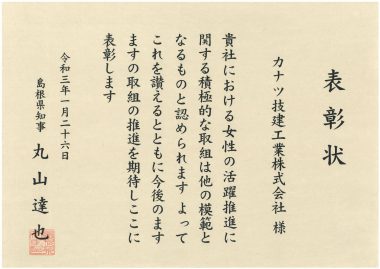 表彰状
カナツ技建工業株式会社 様
貴社における女性の活躍推進に
関する積極的な取組は他の模範と
なるものと認められます よって
これを讃えるとともに今後のます
ますの取組の推進を期待しここに
表彰します
令和三年一月二十六日
島根県知事 丸山達也